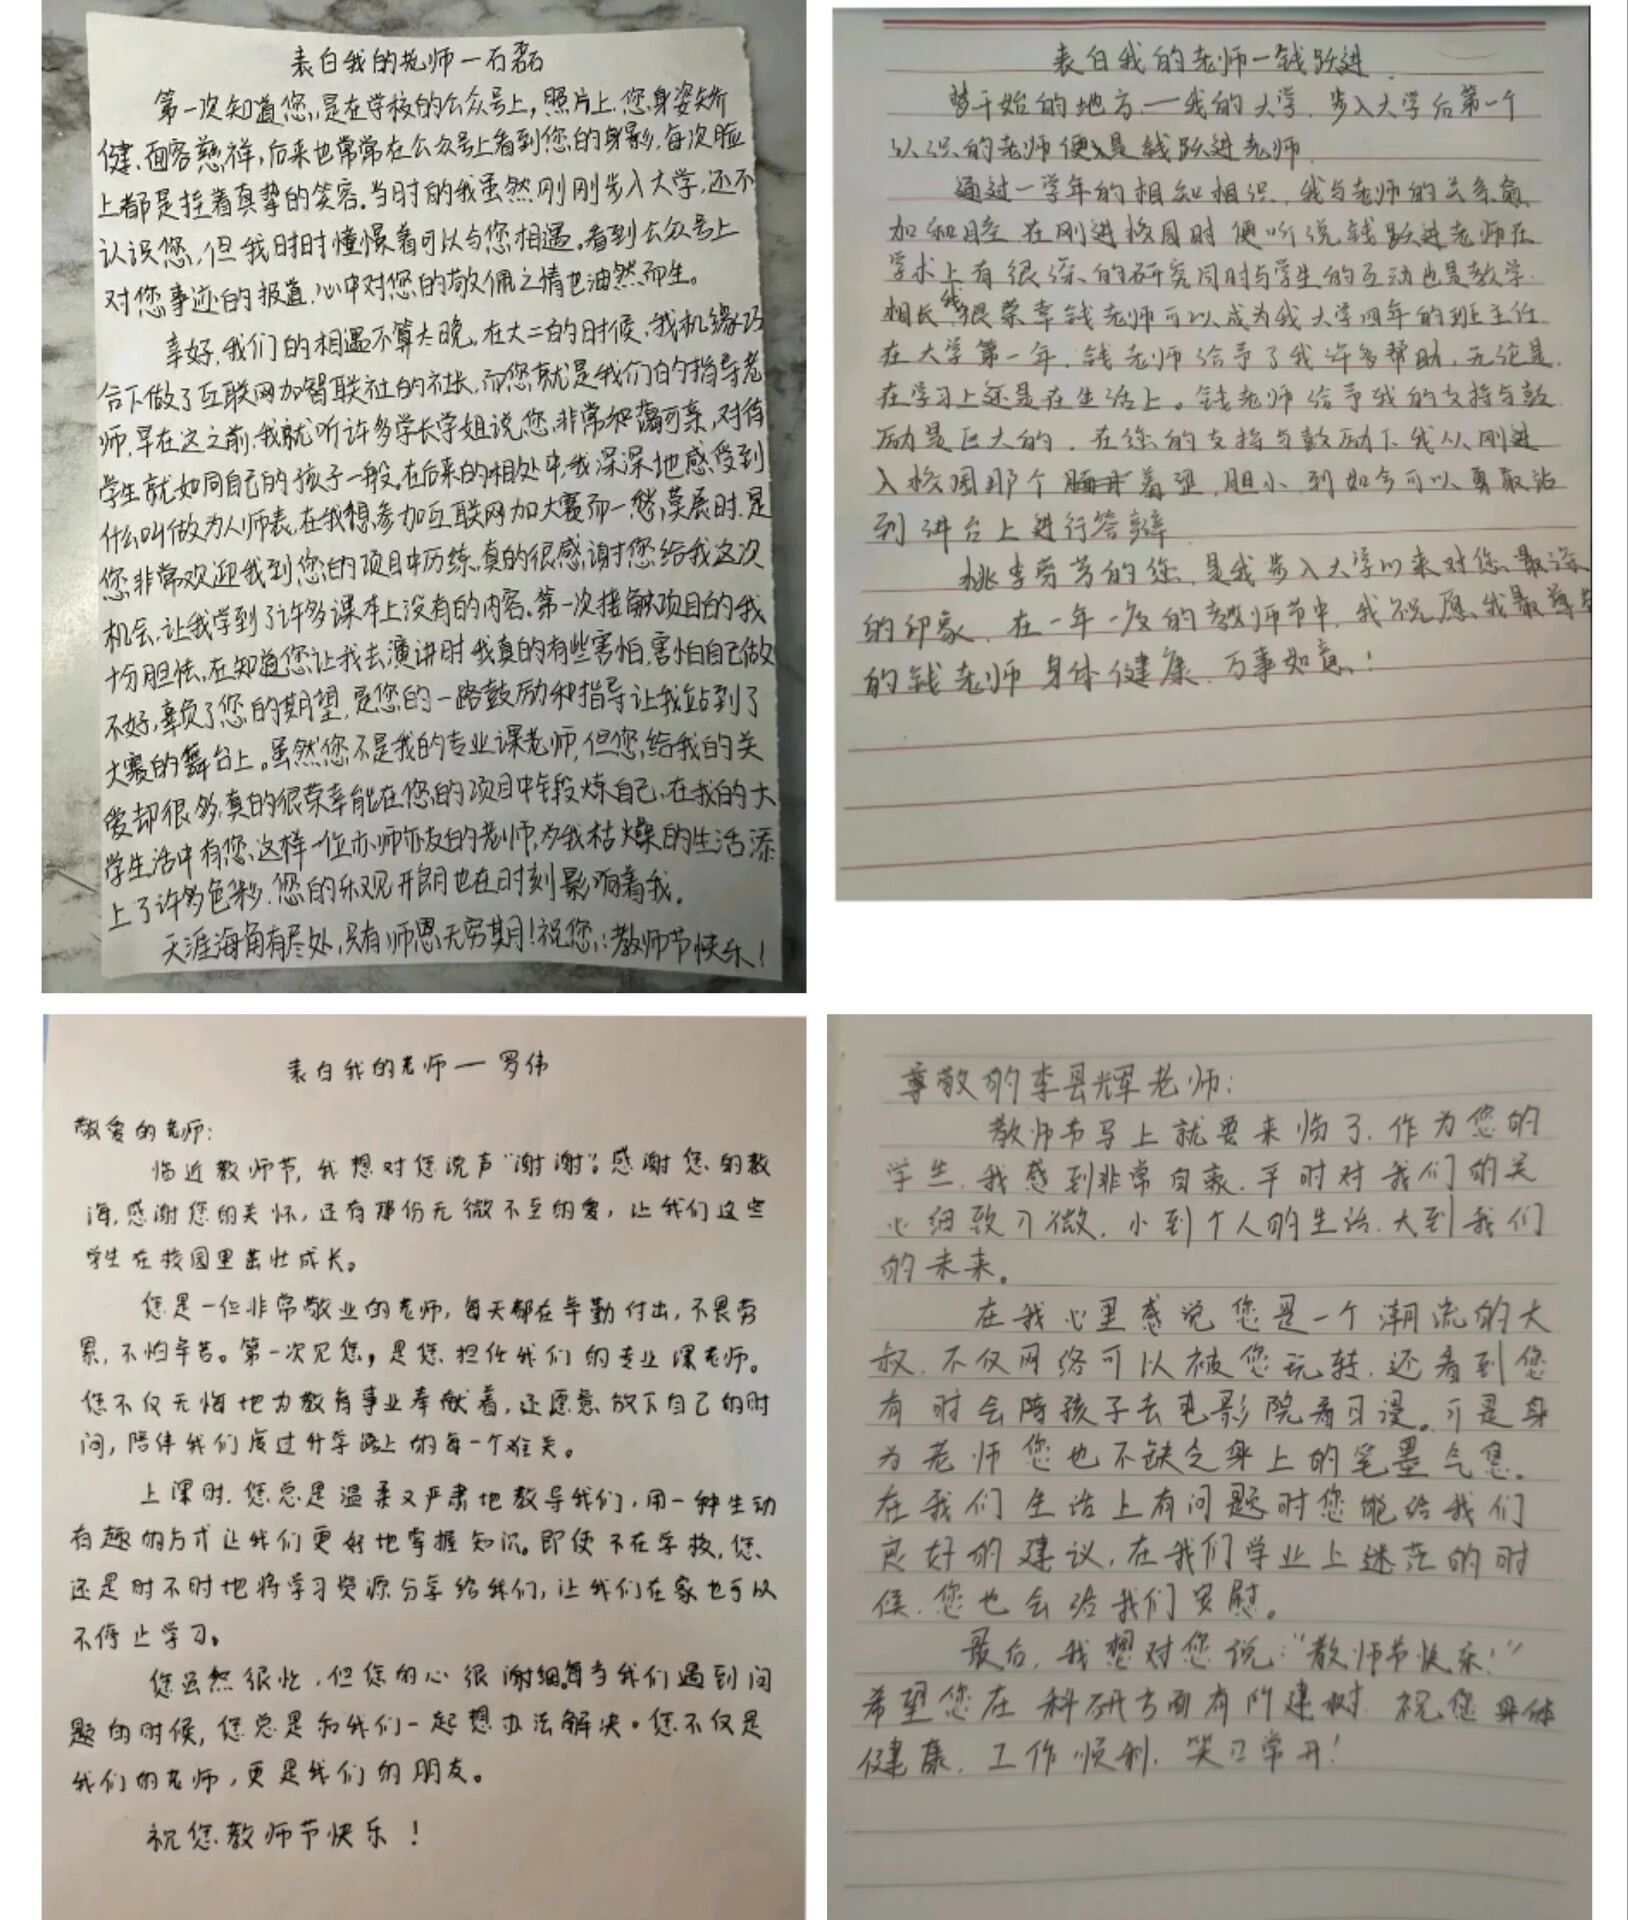 表白我的老师一石磊
第一次知道您,是在学校的公众号上,照片上,您身姿矫
健、面容慈祥,后来也常常在公众号上看到您的身影,每次脸
上都是挂着真挚的笑容。当时的我虽然刚刚步入大学,还不
认识您,但我时时憧憬着可以与您相遇。看到公众号上
对您事迹的报道,心中对您的敬佩之情也油然而生。
幸好,我们的相遇不算太晚。在大二的时候,我机缘巧
合下做了互联网加智联社的社长,而您就是我们的指导老
师,早在这之前,我就听许多学长学姐说您非常和蔼可亲,对待
学生就如同自己的孩子一般。在后来的相处中,我深深地感受到
什么叫做为人师表,在我想参加互联网加大赛而一愁莫展时,是
您非常欢迎我到您的项目中历练,真的很感谢您给我这次
机会,让我学到了许多课本上没有的内容。第一次接触项目的我
十分胆怯,在知道您让我去演讲时我真的有些害怕,害怕自己做
不好,辜负了您的期望,是您的一路鼓励和指导让我站到了
大赛的舞台上。虽然您不是我的专业课老师,但您给我的关
爱却很多,真的很荣幸能在您的项目中锻炼自己,在我的大
学生活中有您这样一位亦师亦友的老师,为我枯燥的生活添
上了许多色彩,您的乐观开朗也在时刻影响着我。
天涯海角有尽处,只有师恩无穷期!祝您:教师节快乐!
表白我的老师一钱跃进
梦开始的地方—我的大学,步入大学后第一个
认识的老师便是钱跃进老师.
通过一学年的相知相识,我与老师的关系愈
加和睦,在刚进校园时便听说钱跃进老师在
学术上有很深的研究同时与学生的互动也是教学
相长,我很荣幸钱老师可以成为我大学四年的班主任
在大学第一年,钱老师给予了我许多帮助,无论是
在学习上还是在生活上。钱老师给予我的支持与鼓
励是巨大的,在您的支持与鼓励下我从刚进
入校园那个羞涩,胆小,到如今可以勇敢站
到讲台上进行答辩.
桃李芬芳的您,是我步入大学以来对您最深
的印象,在一年一度的教师节中,我祝愿我最尊
的钱老师身体健康,万事如意!
表白我的老师一罗伟
敬爱的老师:
临近教师节,我想对您说声“谢谢”。感谢您的教
诲,感谢您的关怀,还有那份无微不至的爱,让我们这些
学生在校园里茁壮成长。
您是一位非常敬业的老师,每天都在辛勤付出,不畏劳
累,不怕辛苦。第一次见您,是您担任我们的专业课老师。
您不仅无悔地为教育事业奉献着,还愿意放下自己的时
间,陪伴我们度过升学路上的每一个难关。
上课时,您总是温柔又严肃地教导我们,用一种生动
有趣的方式让我们更好地掌握知识。即使不在学校,您
还是时不时地将学习资源分享给我们,让我们在家也可以
不停止学习。
您虽然很忙,但您的心很细,每当我们遇到问
题的时候,您总是和我们一起想办法解决。您不仅是
我们的老师,更是我们的朋友。
祝您教师节快乐!
尊敬的李昙辉老师:
教师节马上就要来临了,作为您的
学生,我感到非常自豪,平时对我们的关
心细致习微,小到个人的生活,大到我们
的未来。
在我心里感说您是一个潮流的大
叔,不仅网络可以被您玩转,还看到您
有时会陪孩子去电影院看日漫。可是身
为老师您也不缺乏身上的笔墨气息。
在我们生活上有问题时您能给我们
良好的建议,在我们学业上迷茫的时
候,您也会给我们安慰。
最后,我想对您说:“教师节快乐!”
希望您在科研方面有所建树,祝您身体
健康,工作顺利,笑口常开!